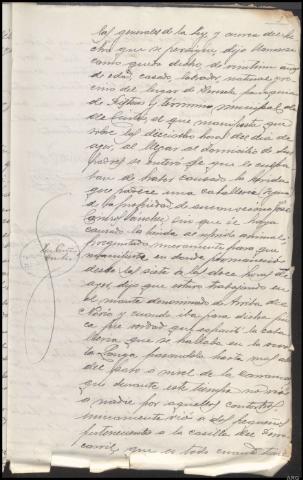 las generales de la Ley, y acerca del he-
cho que se persigue, dijo llamarse
como queda dicho, de veintiun años
de edad, casado, labrador, natural y ve-
cino del lugar de parroquia
de y termino municipal de
el que manifiesta que
sobre las dieciocho horas del dia de
ayer, al llegar al domicilio de sus
padres se enteró que le culpa-
ban de haber causado la herida
que padece una caballeria yegua
de la propiedad de su convecino José
Sanchez sin que él haya
causado la herida al referido animal
preguntado nuevamente para que
manifieste en donde permaneció
desde las siete a las doce horas de
ayer, dijo que estuvo trabajando en
el monte denominado de Arriba do
y cuando iba para dicha fin-
ca fue verdad que espantó la caba-
lleria que se hallaba en la
pasandola hasta mas alla
del paso a nivel de la
que durante este tiempo no vió
a nadie por aquellos contornos
unicamente vió a
pertenecientes a la casilla del ferro-
carril, que es todo cuanto